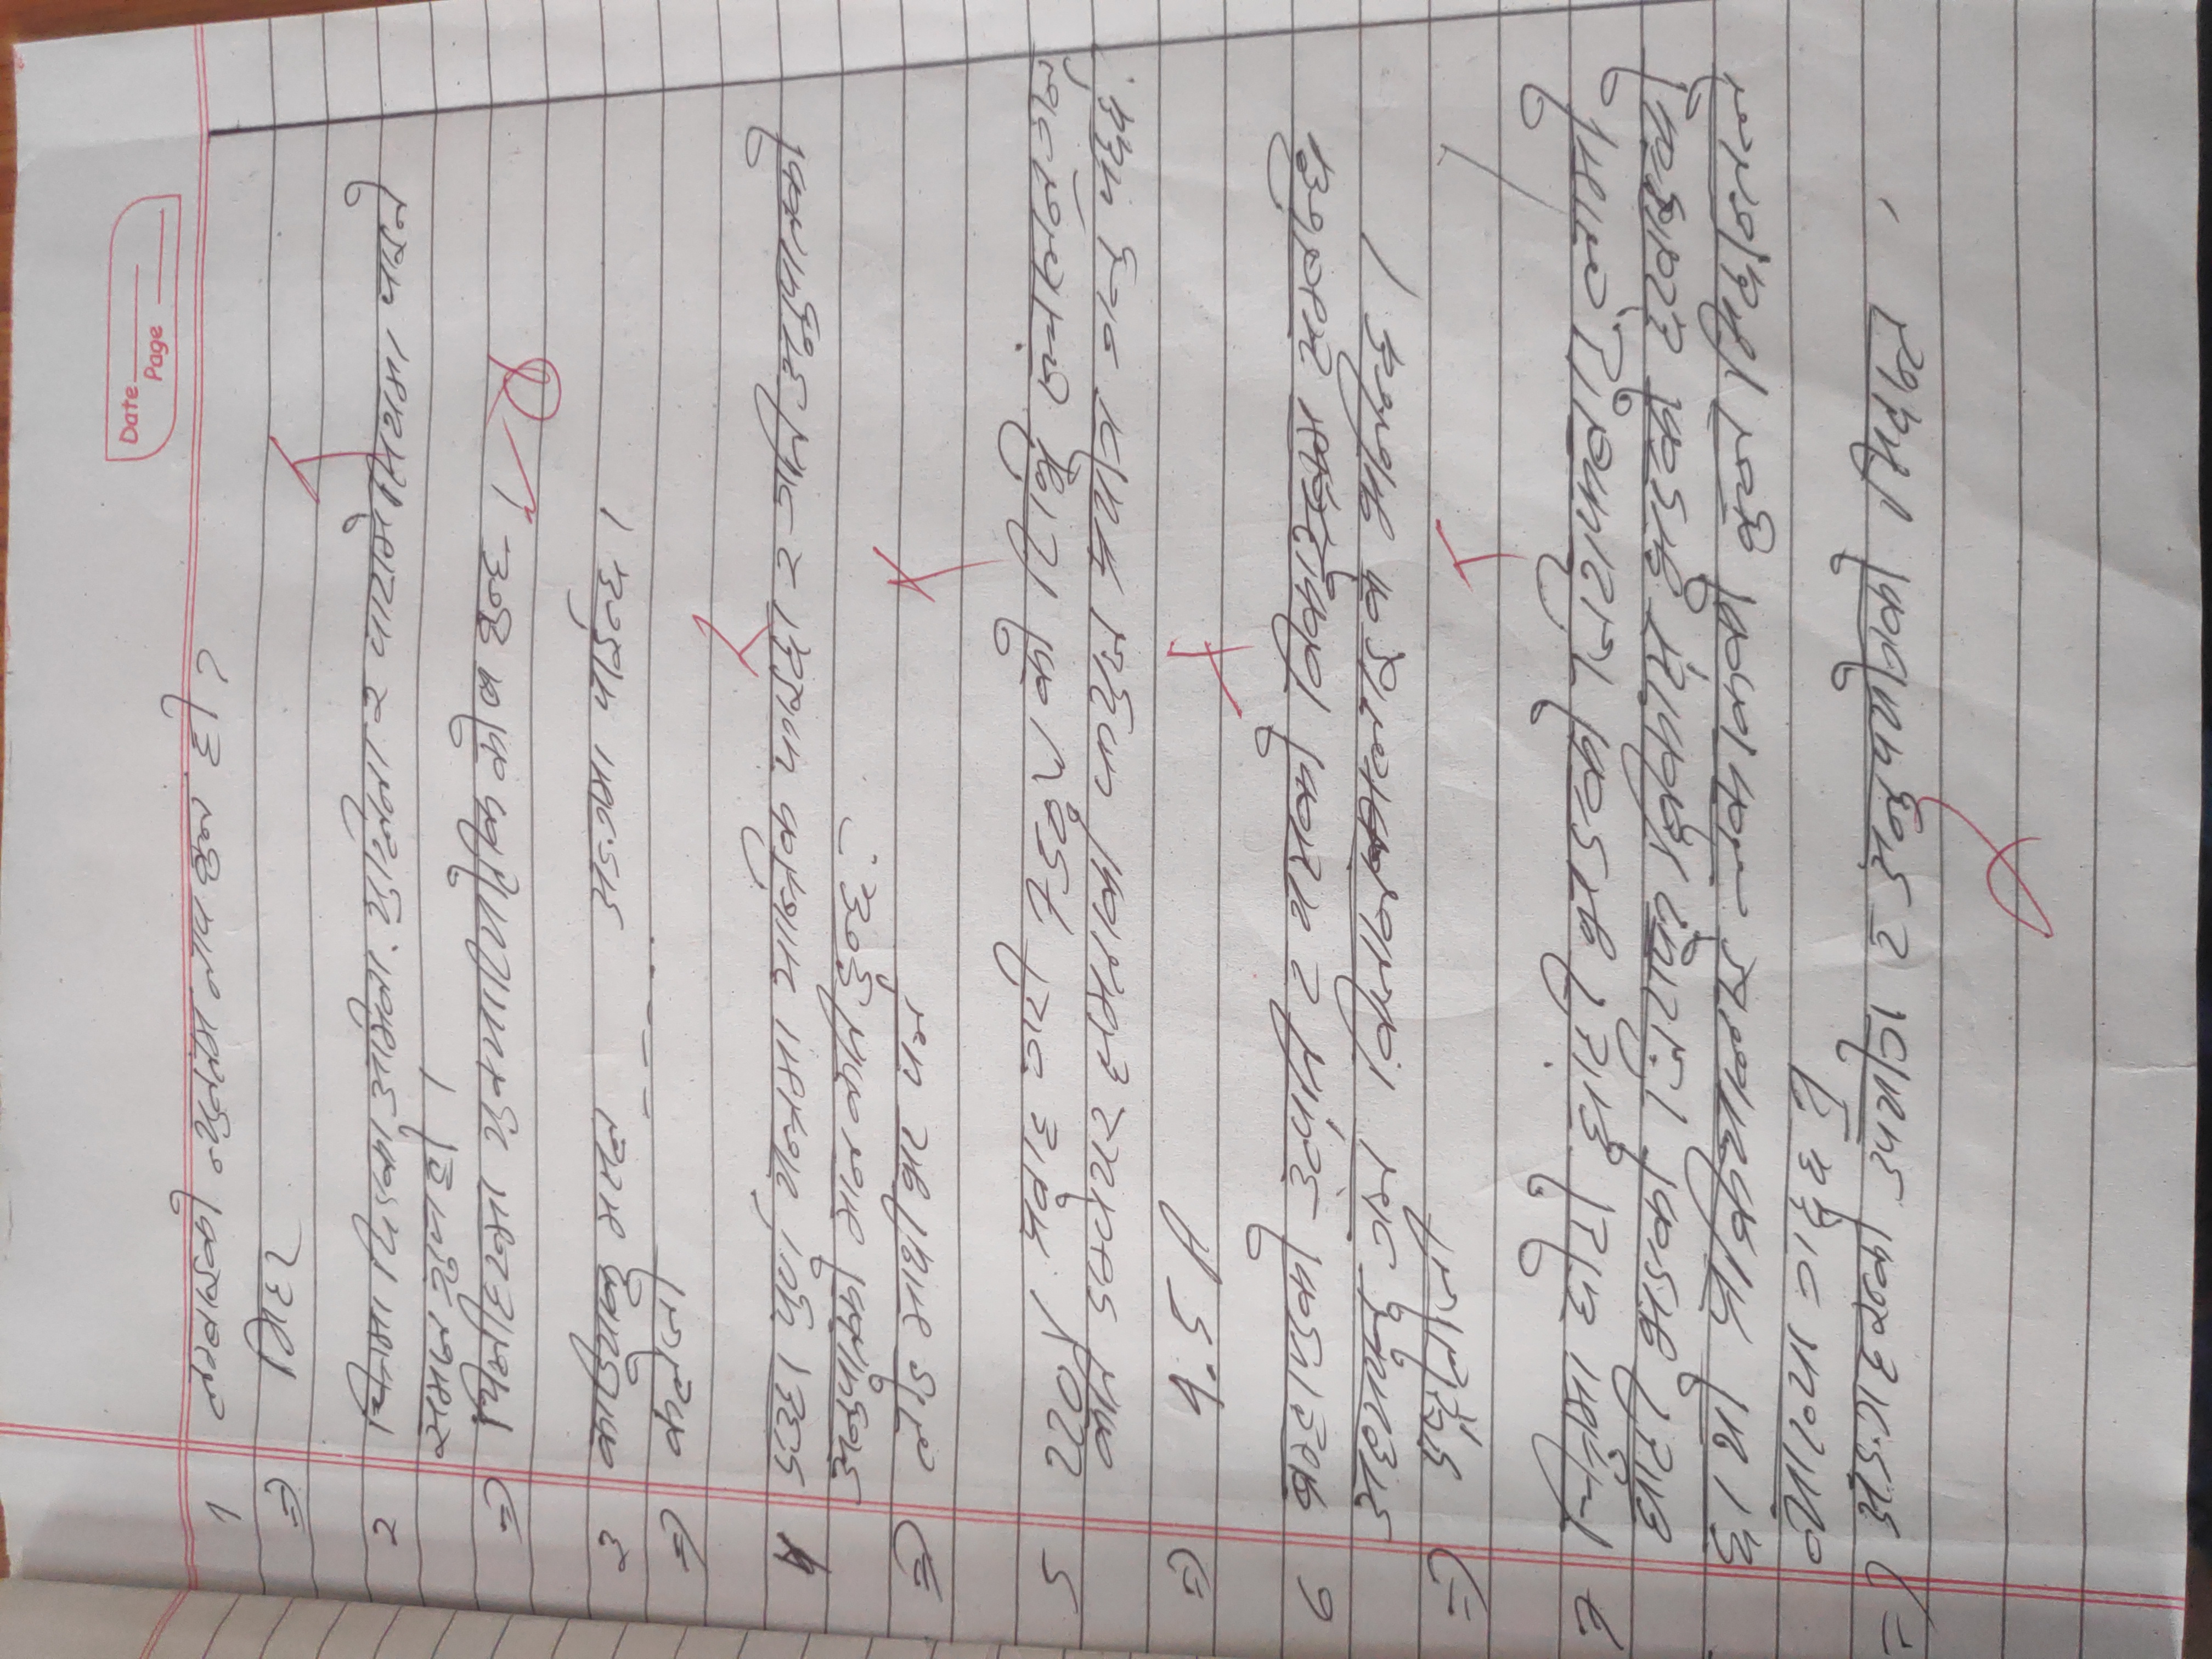 Date
Page
1 लम्बाइको न्युनतम नाप कुन हो ?
=> मिटर
२ चित्रमा दिएका अमिबा, युग्लिना र पारामेसियममा पाइने
समान गुण हो ।
=> यिनीहरुमा युक्यारियोटिक कोष हुन्छ ।
3 कार्डियाक मसल ----- अङ्गमा पाईन्छ ।
=> कलेजो
4 एउटा पुर्ण यन्त्रमा यान्त्रिक फाइदा र गति अनुपातको
अनुपातको मान कति हुन्छ ?
=> लोड माथी भर पर्ने
5 220V प्रवाह गरी 750W को टिभि संचालन गर्न
कति एम्पेयर क्षमताको फ्युज प्रयोग गर्नु पर्दछ ?
=> 4.5 A
6 ब्रम्हाण्डको उत्पति र यसको विकासक्रम सम्बन्धि
अध्ययन गर्ने विज्ञानलाइ के भनिन्छ ।
=> एष्ट्रोलोजी
7 चित्रमा छोटो घांटी भएको जिराफबाट लामो
घाँटी भएको जिराफ विकास भएको देखाइएको
छ। यो प्रक्रियालाई लेमार्कको कुन सिद्धान्तले
व्याख्या गर्दछ ?
=> अङ्गहरुको उपयोग र अनुपयोगको सिद्दान्त ,